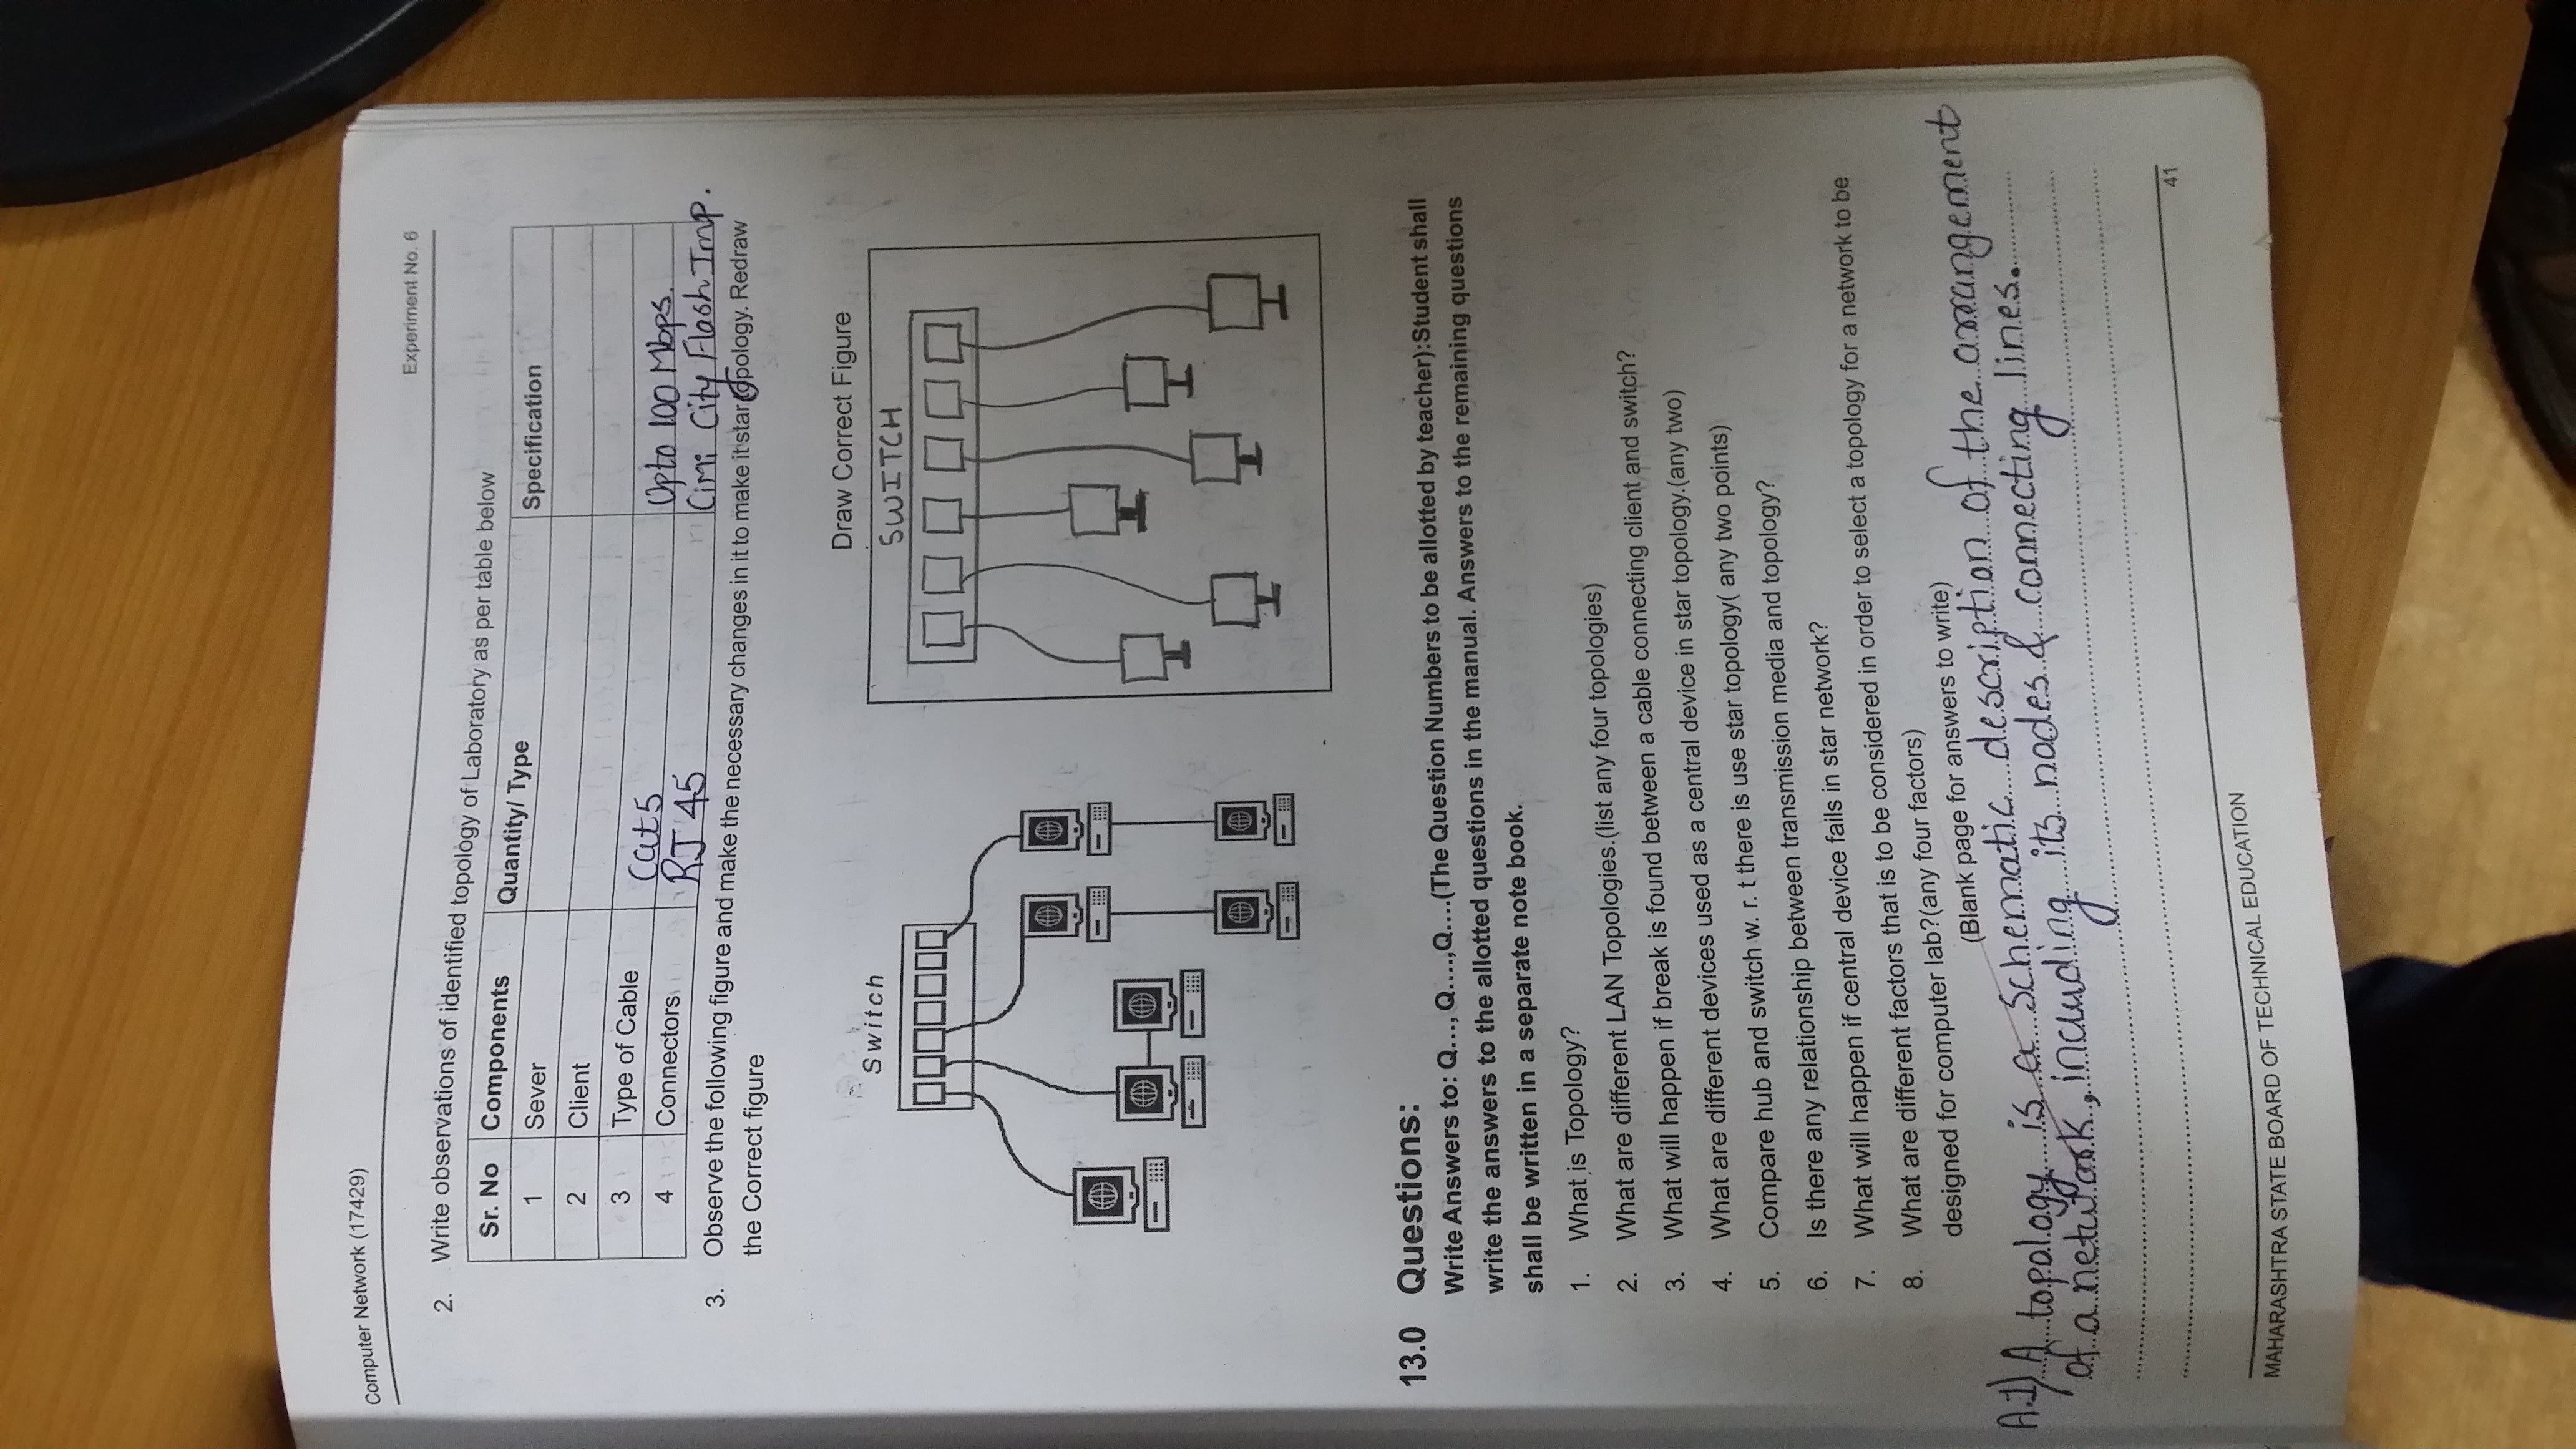 Computer Network (17429) Experiment No. 6
2. Write observations of identified topology of Laboratory as per table below
Sr. No Components Quantity/ Type Specification
1 Sever
2 Client
3 Type of Cable Cat 5 Upto 100 Mbps.
4 Connectors RJ 45 City Flash Imp.
3. Observe the following figure and make the necessary changes in it to make it star topology. Redraw
the Correct figure
Draw Correct Figure
Switch
SWITCH
13.0 Questions:
Write Answers to: Q..., Q....,Q....(The Question Numbers to be allotted by teacher):Student shall
write the answers to the allotted questions in the manual. Answers to the remaining questions
shall be written in a separate note book.
1. What is Topology?
2. What are different LAN Topologies.(list any four topologies)
3. What will happen if break is found between a cable connecting client and switch?
4. What are different devices used as a central device in star topology.(any two)
5. Compare hub and switch w. r. t there is use star topology( any two points)
6. Is there any relationship between transmission media and topology?
7. What will happen if central device fails in star network?
8. What are different factors that is to be considered in order to select a topology for a network to be
designed for computer lab?(any four factors)
(Blank page for answers to write)
A.1) A topology is a schematic description of the arrangement
of a network, including its nodes & connecting lines.
MAHARASHTRA STATE BOARD OF TECHNICAL EDUCATION 41